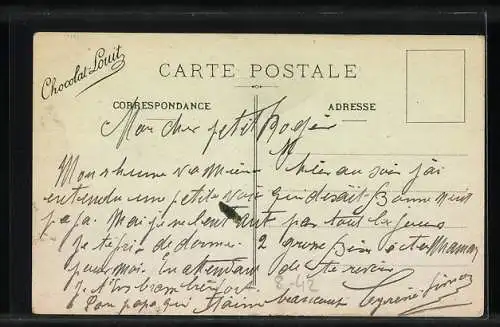 Chocolat Louit
CARTE POSTALE
CORRESPONDANCE
ADRESSE
Mon cher petit Roger
Mon rhume va mieux hier au soir j'ai
entendu une petite voix qui disait Bonne nuit
papa. Moi je n'entend pas tous les jours
je te prie de donner 2 grosse bise à ta Maman
pour moi. En attendant de te revoir
je t'embrasse bien fort
Ton papa qui t'aime beaucoup
8-42